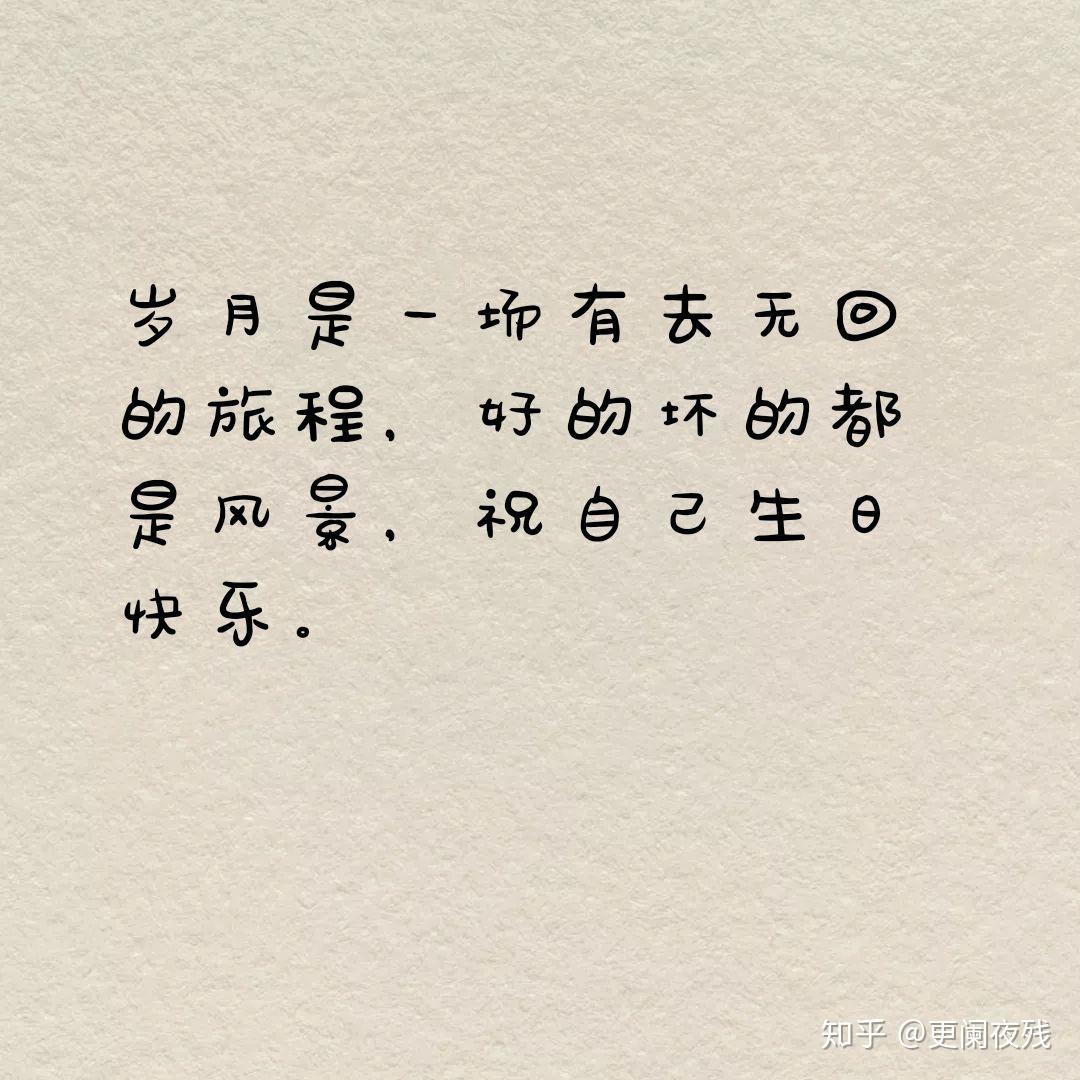 岁月是一场有去无回
的旅程，好的坏的都
是风景，祝自己生日
快乐。
知乎 @更阑夜残